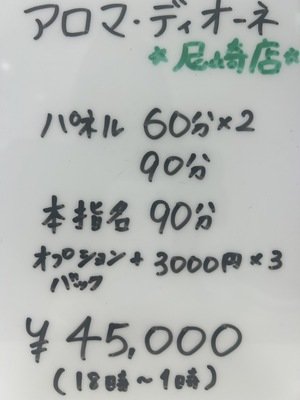 アロマ・ディオーネ
*尼崎店*
パネル 60分×2
90分
本指名 90分
オプション + 3000円×3
バック
¥45,000
(18時〜1時)